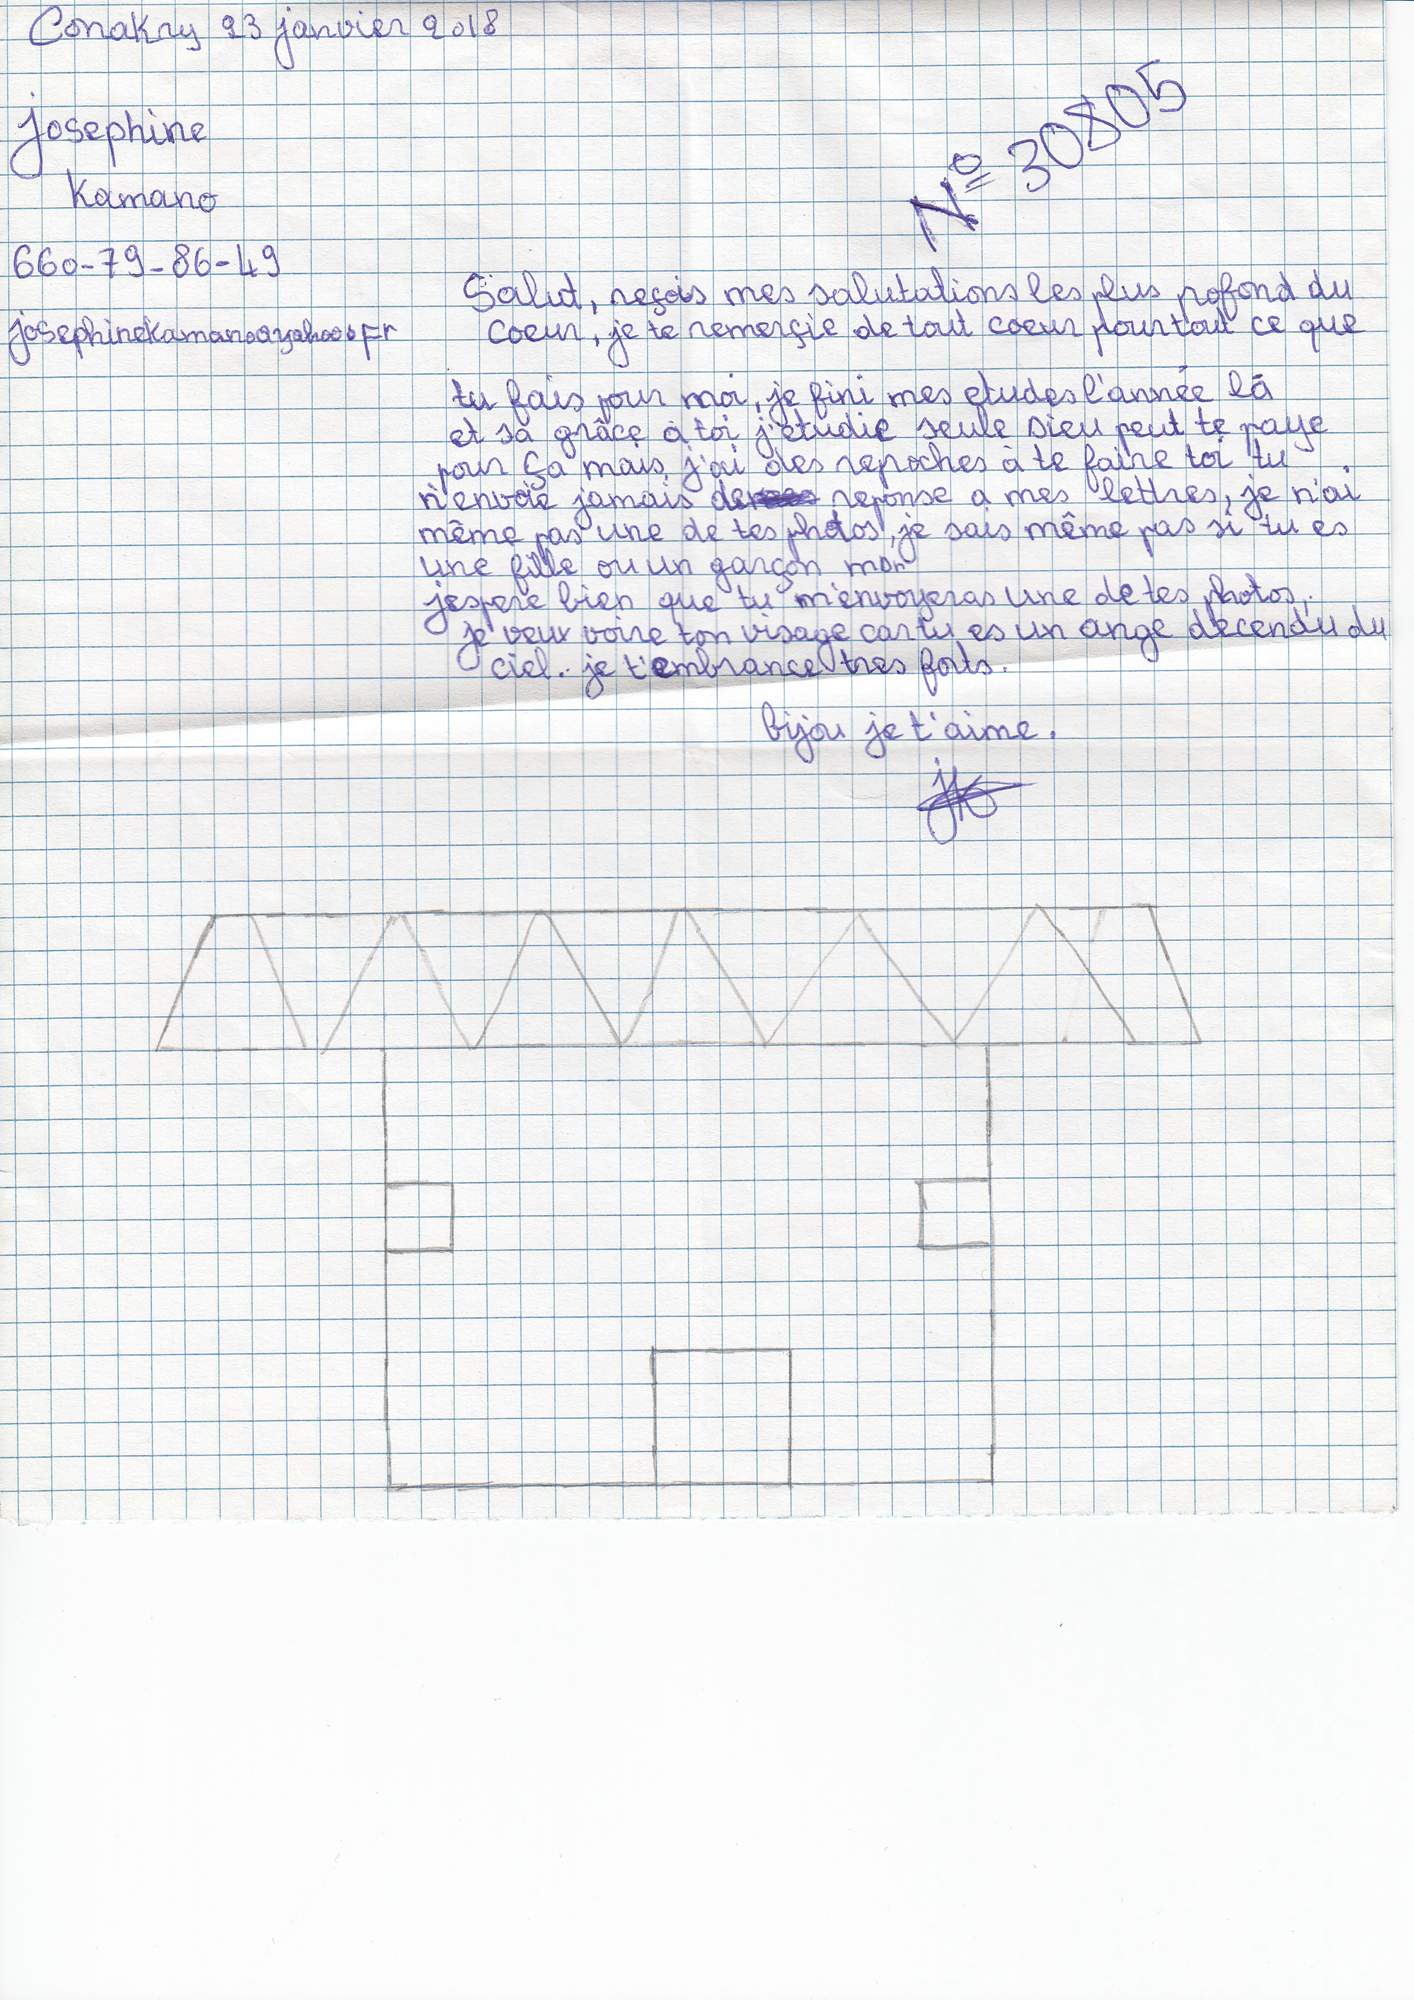 Conakry 23 janvier 2018
N° 30805
josephine
Kamano
660-79-86-49
josephinekamanoayahoo.Fr
Salut, reçois mes salutations les plus pofond du
coeur, je te remerçie de tout coeur pour tout ce que
tu fais pour moi, je fini mes etudes l'année là
et sa grâce à toi j'etudie seule Dieu peut te paye
pour ça mais j'ai des repoches à te faire toi tu
n'envoie jamais de reponse a mes lettres, je n'ai
même pas une de tes photos, je sais même pas si tu es
une fille ou un garçon mon
j'espere bien que tu m'envoyeras une de tes photos,
je veux voire ton visage car tu es un ange decendu du
ciel.. je t'embrance tres forts.
bijou je t'aime.
JK